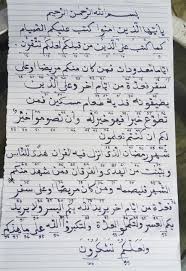 بسم الله الرحمن الرحيم
يأيها الذين ءامنوا كتب عليكم الصيام
كما كتب على الذين من قبلكم لعلكم تتقون
أياما معدودات فمن كان منكم مريضا أو على
سفر فعدة من أيام أخر وعلى الذين
يطيقونه فدية طعام مسكين فمن
تطوع خيرا فهو خير له وأن تصوموا خير
لكم إن كنتم تعلمون
شهر رمضان الذي أنزل فيه القرآن هدى للناس
وبينت من الهدى والفرقان فمن شهد منكم
الشهر فليصمه ومن كان مريضا أو على سفر
فعدة من أيام أخر يريد الله بكم اليسر ولا يريد
بكم العسر ولتكملوا العدة ولتكبروا الله على ما هدىكم
ولعلكم تشكرون